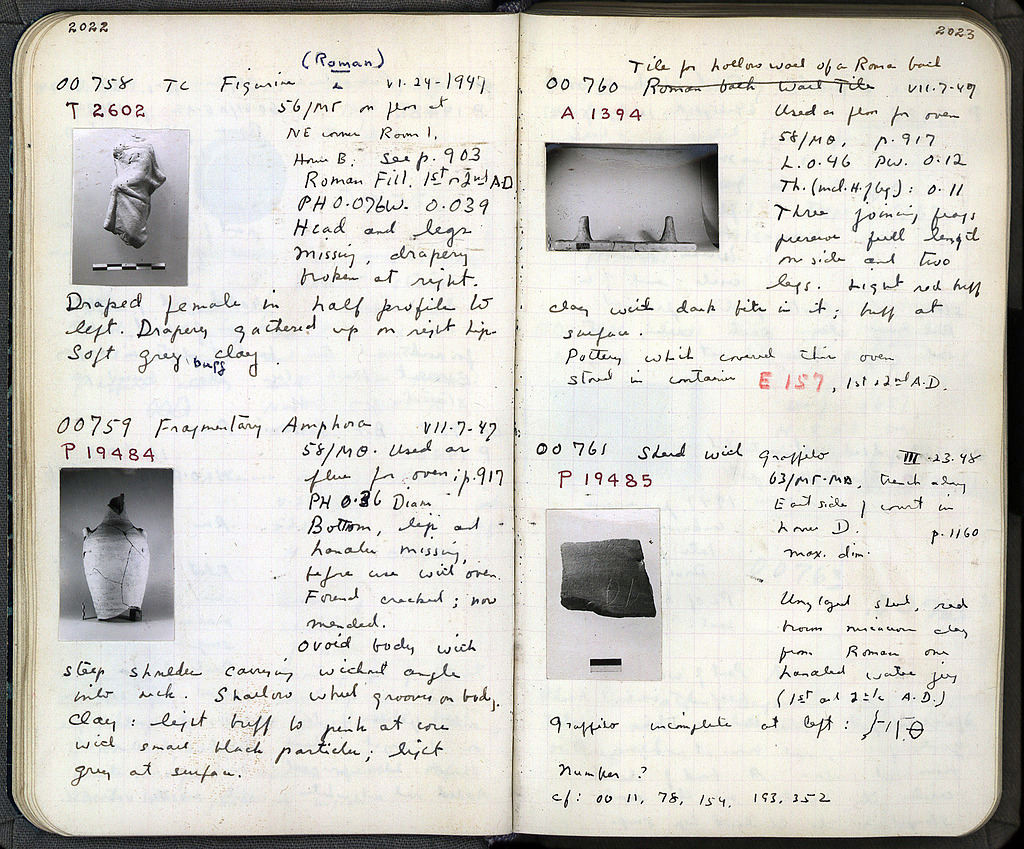 2022
(Roman)
OO 758 TC Figurine VI-24-1947
T 2602
56/ΜΓ on floor at
NE corner Room 1,
House B. See p. 903
Roman Fill. 1st - 2nd A.D.
PH 0.076 W. 0.039
Head and legs
missing, drapery
broken at right.
Draped female in half profile to
left. Drapery gathered up on right hip.
Soft grey buff clay.
OO759 Fragmentary Amphora VII-7-47
P 19484
58/ΜΘ. Used as
flue for oven; p.917
PH 0.36 Diam
Bottom, lip and
handles missing,
before use with oven.
Found cracked; now
mended.
Ovoid body with
steep shoulder carrying without angle
into neck. Shallow wheel grooves on body.
Clay: light buff to pink at core
with small black particles; light
grey at surface.
2023
Tile for hollow wall of a Roman bath
OO 760 Roman bath Wall Tile VII-7-47
A 1394
Used as floor for oven
58/ΜΘ, p.917
L. 0.46 PW. 0.12
Th. (incl. H. of leg): 0.11
Three joining frags
preserve full length
on side and two
legs. Light red buff
clay with dark bits in it; buff at
surface.
Pottery which covered this oven
stored in container E 157, 1st & 2nd A.D.
OO 761 Sherd with graffito III-23-48
P 19485
63/ΜΓ-ΜΔ, trench along
East side of court in
house D. p. 1160
max. dim.
Unglazed sherd, red
brown micaceous clay
from Roman one
handled water jug
(1st or 2nd c. A.D.)
Graffito incomplete at left:
Number?
cf: OO 11, 78, 154, 193, 352